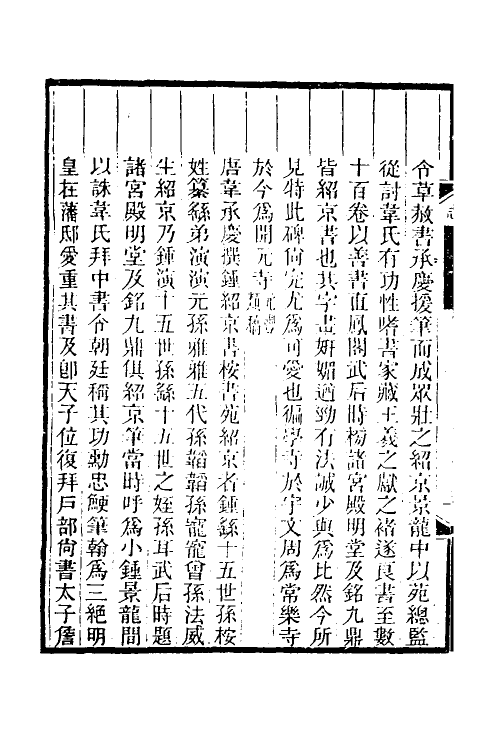 令草赦書承慶援筆而成眾壯之紹京景龍中以苑總監
從討韋氏有功性嗜書家藏王羲之獻之褚遂良書至數
十百卷以善書直鳳閣武后時榜諸宮殿明堂及銘九鼎
皆紹京書也其字畫妍媚遒勁有法誠少與為比然今所
見特此碑尚完尤為可愛也徧學寺於宇文周為常樂寺
於今為開元寺元豐類稿
唐韋承慶撰鍾紹京書按書苑紹京者鍾繇十五世孫桉
姓纂繇弟演演元孫雅雅五代孫韜韜孫寵寵曾孫法威
生紹京乃鍾演十五世孫繇十五世之姪孫耳武后時題
諸宮殿明堂及銘九鼎俱紹京筆當時呼為小鍾景龍間
以誅韋氏拜中書令朝廷稱其功勳忠鯁筆翰為三絕明
皇在藩邸愛重其書及卽天子位復拜戶部尚書太子詹